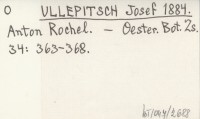 O VLLEPITSCH Josef 1884.
Anton Rochel. – Oester. Bot. Zs.
34: 363-368.